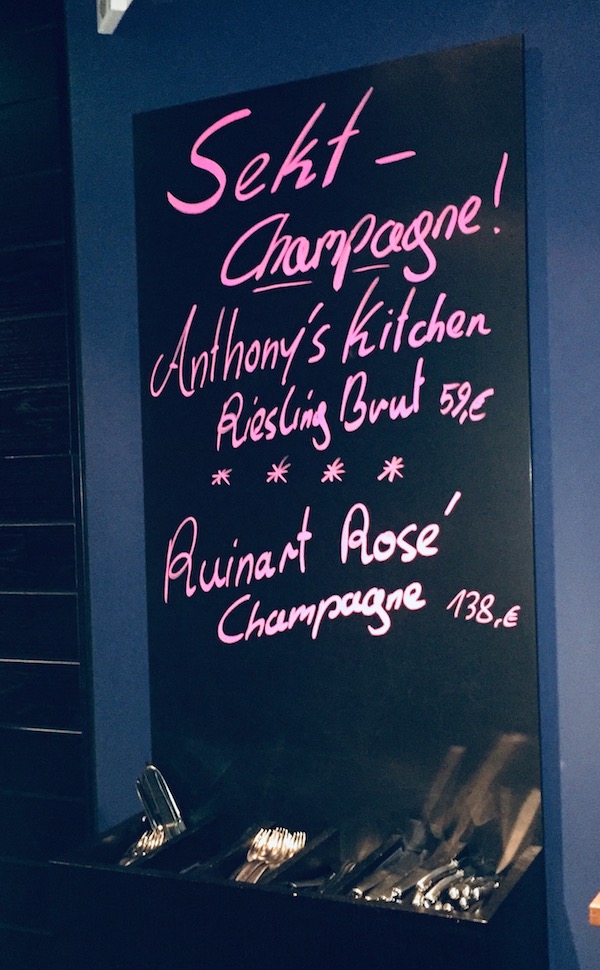 Sekt-
Champagne!
Anthony's Kitchen
Riesling Brut 59,€
* * * *
Ruinart Rosé
Champagne 138,€